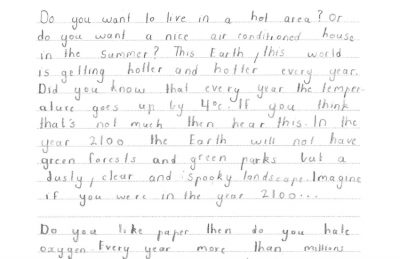 Do you want to live in a hot area? Or
do you want a nice air conditioned house
in the summer? This Earth, this world
is getting hotter and hotter every year.
Did you know that every year the temper-
ature goes up by 4°c. If you think
that's not much then hear this. In the
year 2100 the Earth will not have
green forests and green parks but a
dusty, clear and spooky landscape. Imagine
if you were in the year 2100...
Do you like paper then do you hate
oxygen. Every year more than millions